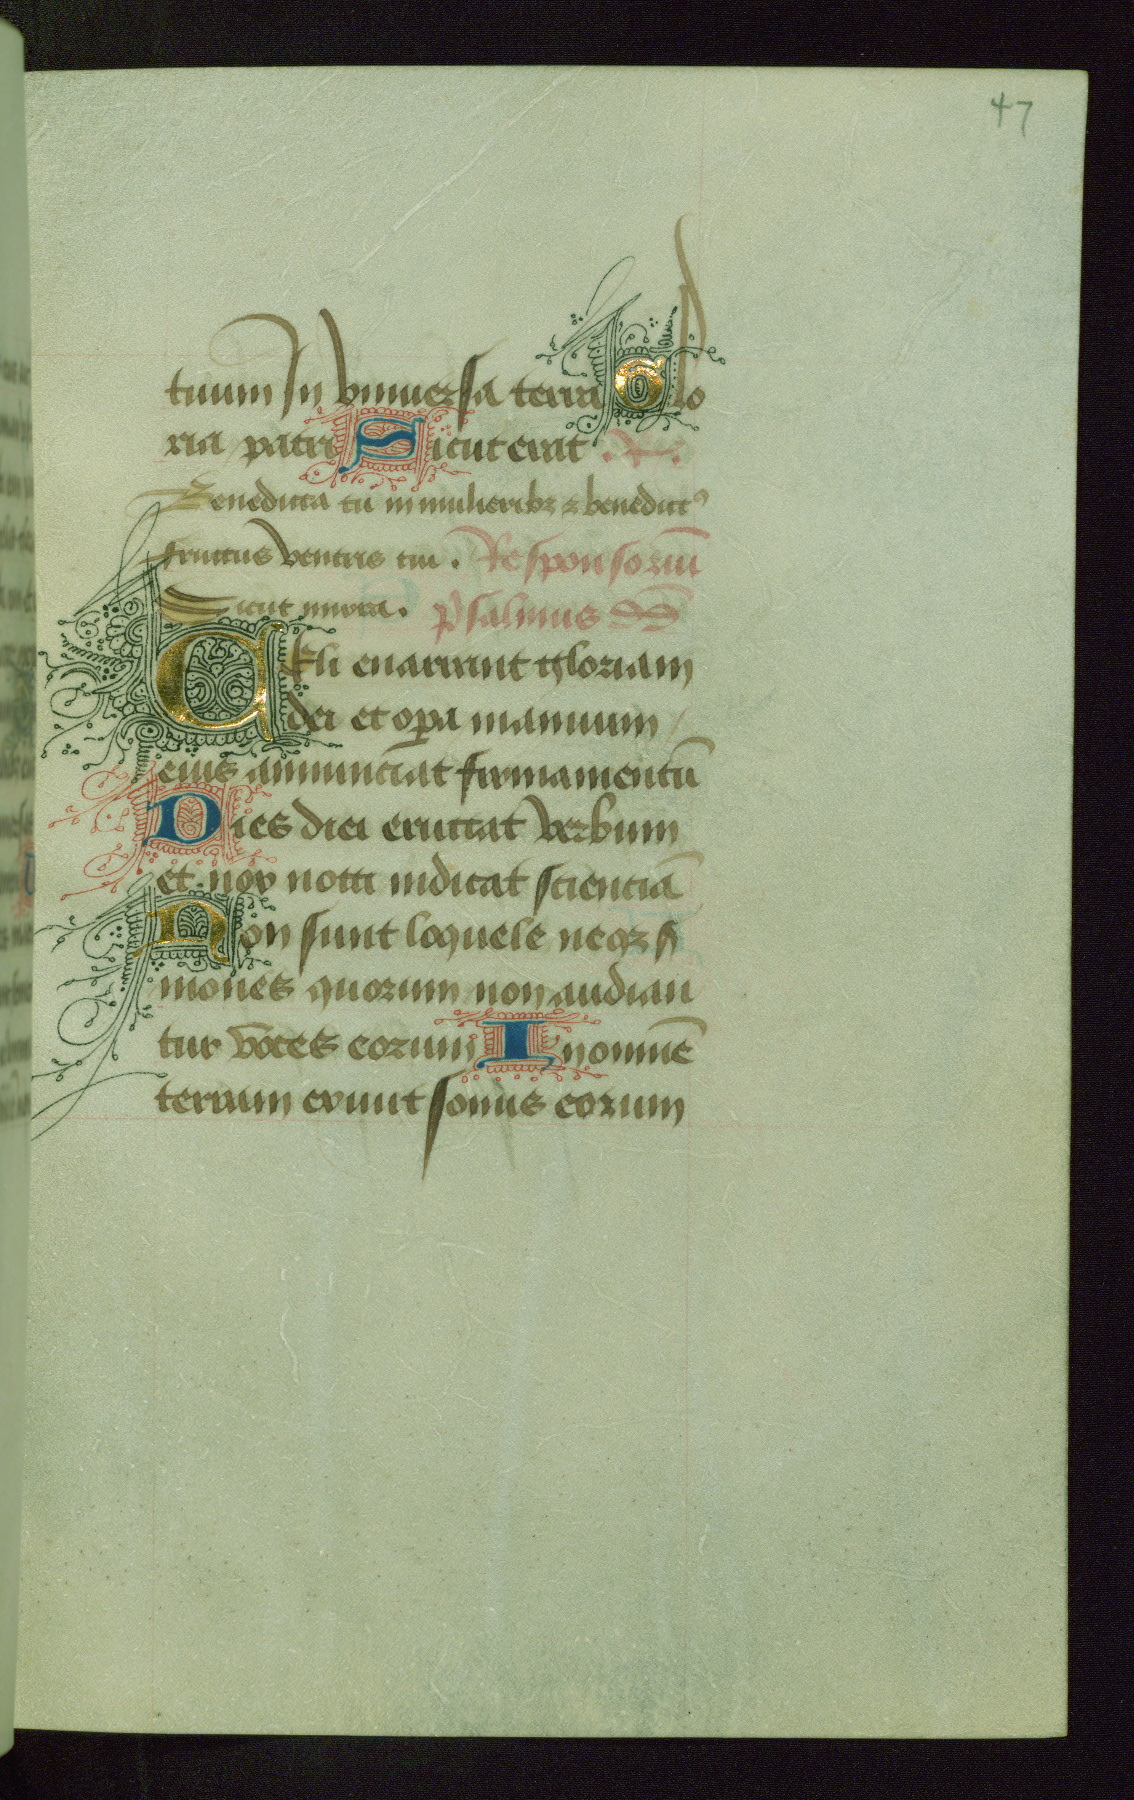 47
tuum In vniuersa terra Glo
ria patri Sicut erat An.
Benedicta tu in mulieribꝫ ⁊ benedictꝰ
fructus ventris tui. Responsoriū
Sicut mirra. Psalmus
Celi enarrant gloriam
dei et oꝑa manuum
eius annunciat firmamentū
Dies diei eructat verbum
et nox nocti indicat scientiā
Non sunt loquele neqꝫ s̄
mones quorum non audian
tur voces eorum In omnē
terram exiuit sonus eorum